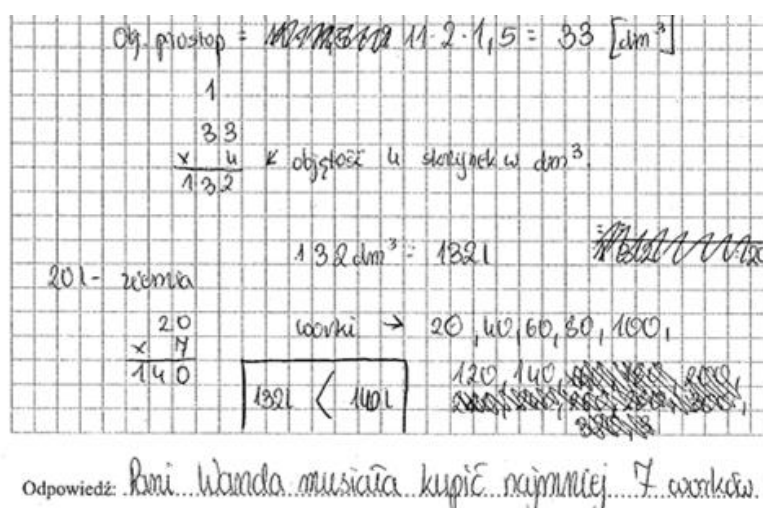 Obj. prostop = 11·2·1,5 = 33 [dm³]
1
33
x 4 ↙ objętość 4 skrzynek w dm³.
132
132 dm³ = 132 l
20 l - ziemia
20 worki → 20, 40, 60, 80, 100,
x 7
140 132 l < 140 l 120, 140,
Odpowiedź: Pani Wanda musiała kupić najmniej 7 worków.